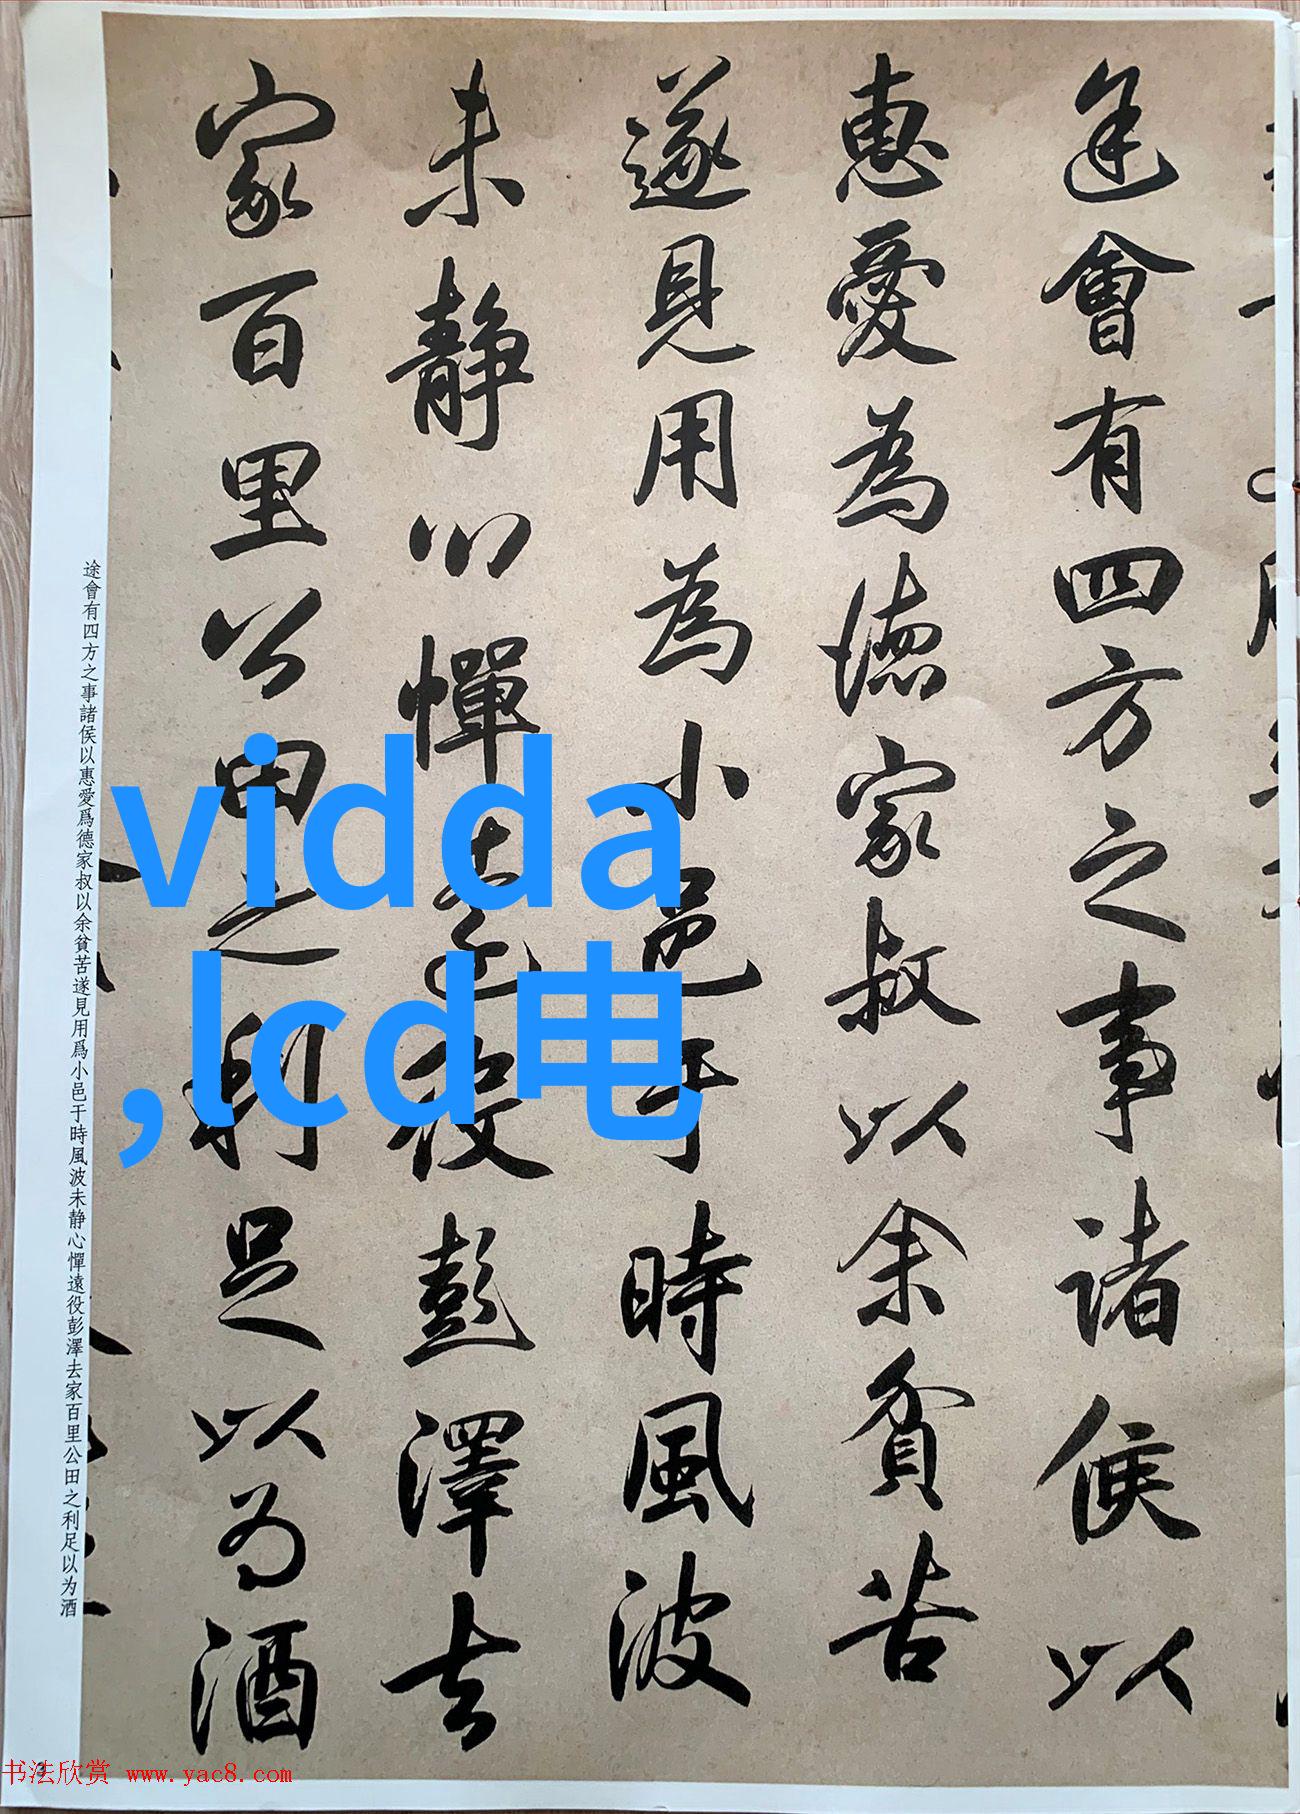 途會有四方之事諸侯以
惠愛為德家叔以余貧苦
遂見用為小邑于時風波
未静心憚遠役彭澤去
家百里公田之利足以为酒
途會有四方之事諸侯以惠愛爲德家叔以余貧苦遂見用爲小邑于時風波未静心憚遠役彭澤去家百里公田之利足以为酒
vidda
,lcd电
3
书法欣赏 www.yac8.com